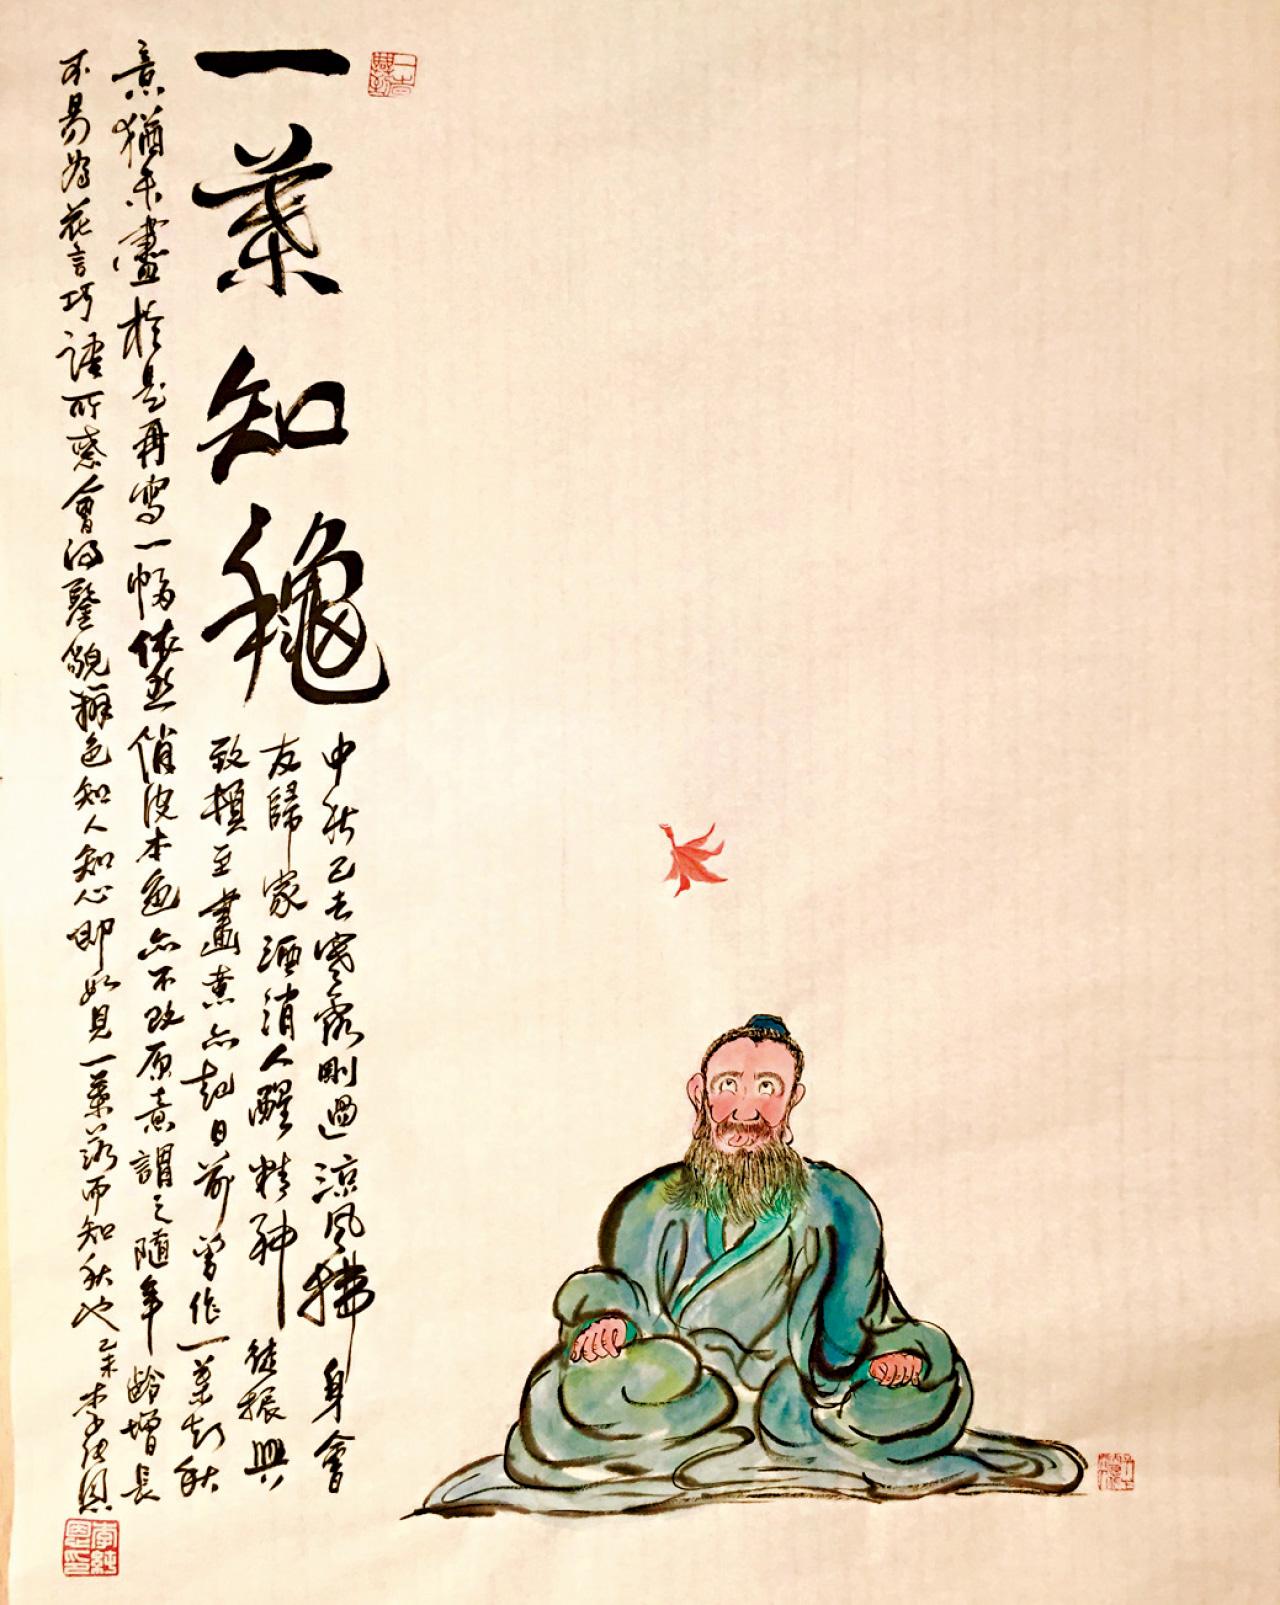 一葉知龝
中秋已去寒露剛過涼風拂身會
友歸家酒消人醒精神陡振興
致頓至畫意亦起日前曾作一葉知秋
意猶未盡於是再寫一幅依然俏皮本色亦不改原意謂之隨年齡增長
不易為花言巧語所惑會得鑒貌辨色知人知心即如見一葉落而知秋也乙未李純恩
李純恩印